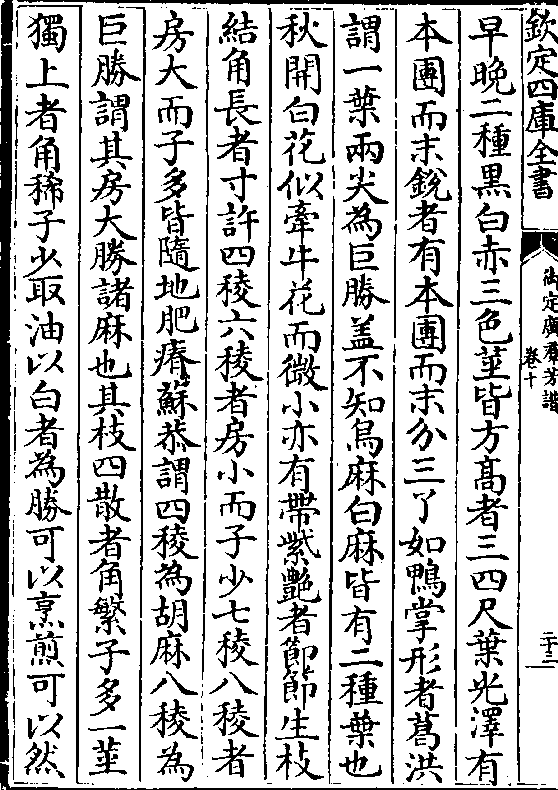 欽定四庫全書
御定廣羣芳譜
卷十
二十三
早晚二種黑白赤三色莖皆方髙者三四尺葉光澤有
本團而末銳者有本團而末分三丫如鴨掌形者葛洪
謂一葉兩尖為巨勝盖不知烏麻白麻皆有二種葉也
秋開白花似牽牛花而微小亦有帶紫艶者節節生枝
結角長者寸許四稜六稜者房小而子少七稜八稜者
房大而子多皆隨地肥瘠蘇恭謂四稜為胡麻八稜為
巨勝謂其房大勝諸麻也其枝四散者角繁子多一莖
獨上者角稀子少取油以白者為勝可以烹煎可以然